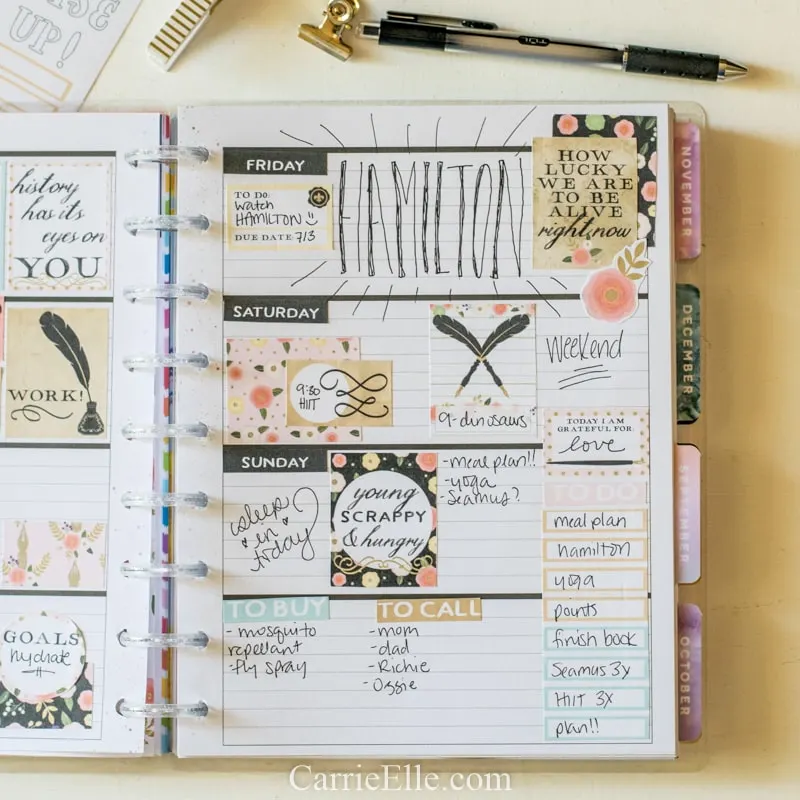 RISE
UP!
history
has its
eyes on
YOU
WORK!
GOALS
hydrate
FRIDAY
TO DO:
watch
HAMILTON
DUE DATE 7/3
HAMILTON
HOW
LUCKY
WE ARE
TO BE
ALIVE
right now
SATURDAY
9:30
HIIT
9-dinosaurs
Weekend
TODAY I AM
GRATEFUL FOR:
love
SUNDAY
asleep
in
today
young
SCRAPPY
& hungry
-meal plan!!
-yoga
-Seamus?
TO BUY
- mosquito
repellant
-fly spray
TO CALL
-mom
-dad
-Richie
-Ozzie
TO DO
meal plan
hamilton
yoga
points
finish book
Seamus 3x
HIIT 3X
plan!!
NOVEMBER
DECEMBER
SEPTEMBER
OCTOBER
CarrieElle.com